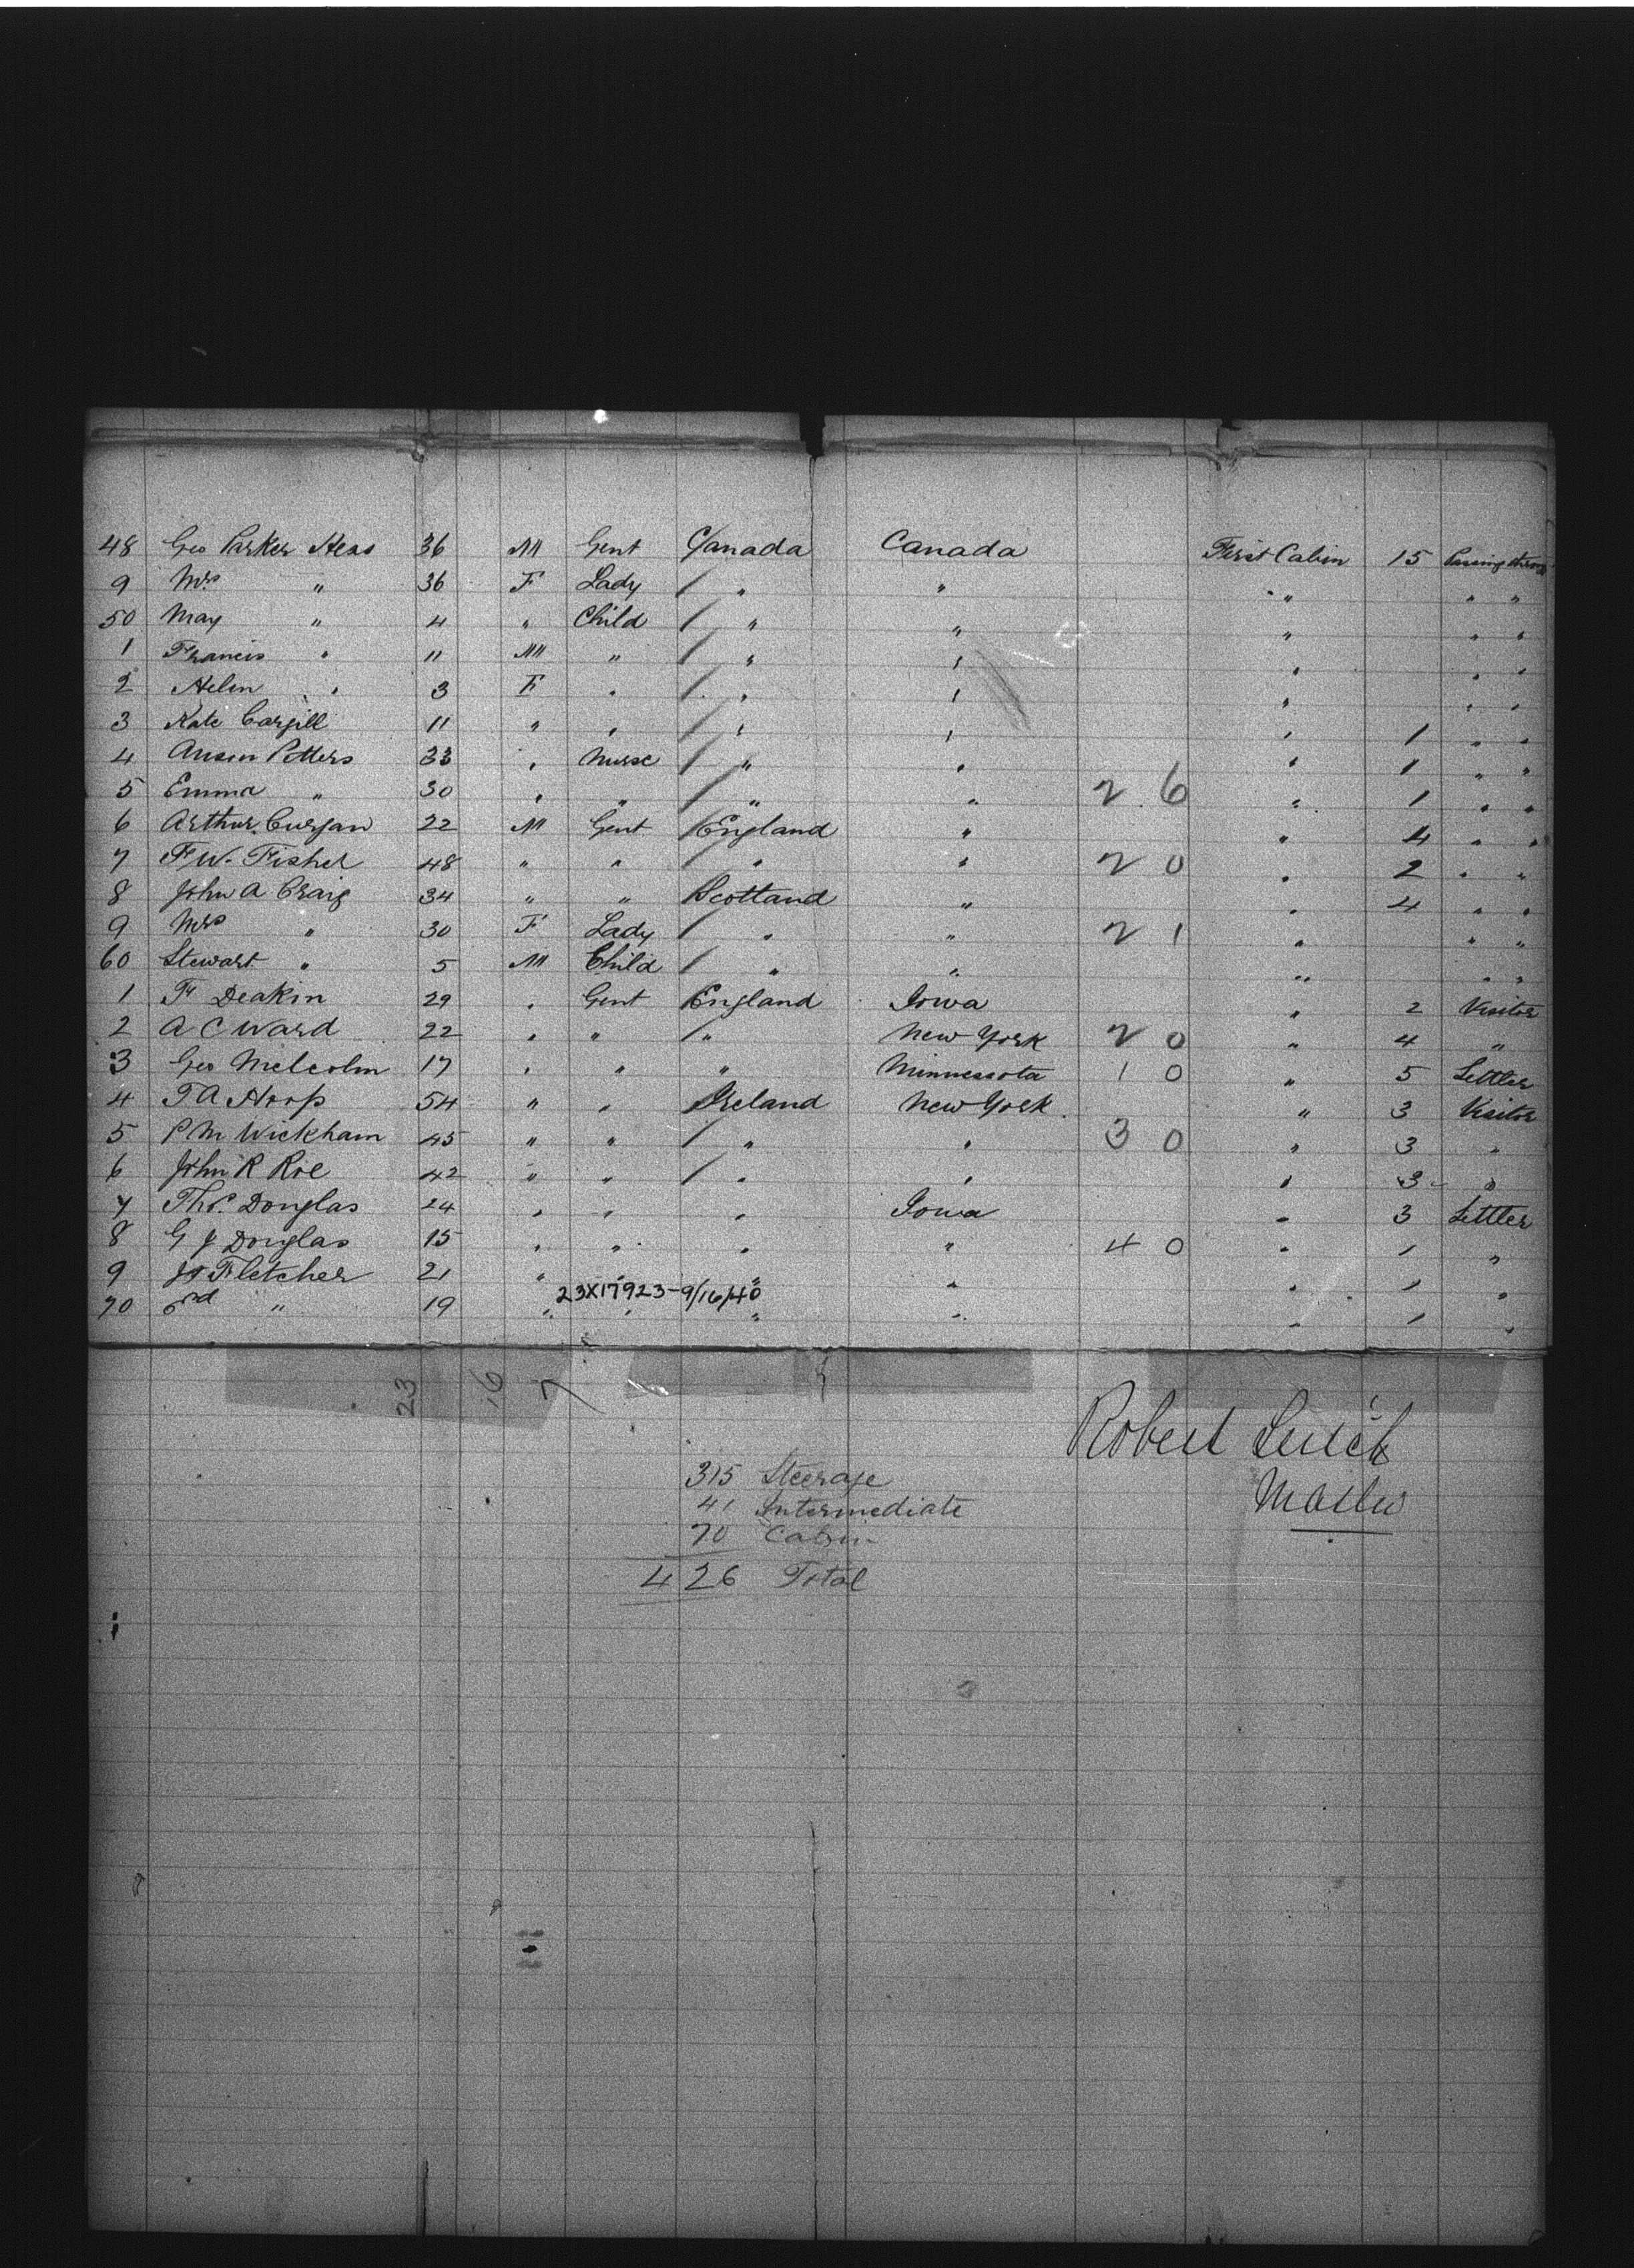 48 Geo Parker Heas 36 M Gent Canada Canada First Cabin 15 Passing thro
9 Mrs " 36 F Lady / " " " " "
50 May " 4 " Child / " " " " "
1 Francis " 11 M " / " " " " "
2 Helen " 3 F " / " " " " "
3 Kate Cargill 11 " " / " " " 1 " "
4 Petters 33 " Nurse / " " " 1 " "
5 Emma " 30 " " / " " 2 6 " 1 " "
6 Arthur Curzan 22 M Gent / England " " 4 " "
7 F W. Fisher 48 " " / " " 2 0 " 2 " "
8 John A Craig 34 " " Scotland " " 4 " "
9 Mrs " 30 F Lady / " " 2 1 " " "
60 Stewart " 5 M Child / " " " " "
1 F Deakin 29 " Gent England Iowa " 2 Visitor
2 A C Ward 22 " " / " New York 2 0 " 4 "
3 Geo Melcolm 17 " " " Minnessota 1 0 " 5 Settler
4 T A Hoop 54 " " Ireland New York " 3 Visitor
5 P M Wickham 45 " " / " " 3 0 " 3 "
6 John R Roe 42 " " / " " " 3 "
7 Thos. Douglas 24 " " " Iowa " 3 Settler
8 G J Douglas 15 " " " " 4 0 " 1 "
9 Js Fletcher 21 " " " " " 1 "
23X17923-9/16/40
70 " 19 " " " " " 1 "
23 16 7
Robert Leitch
Master
315 Steerage
41 Intermediate
70 Cabin
426 Total